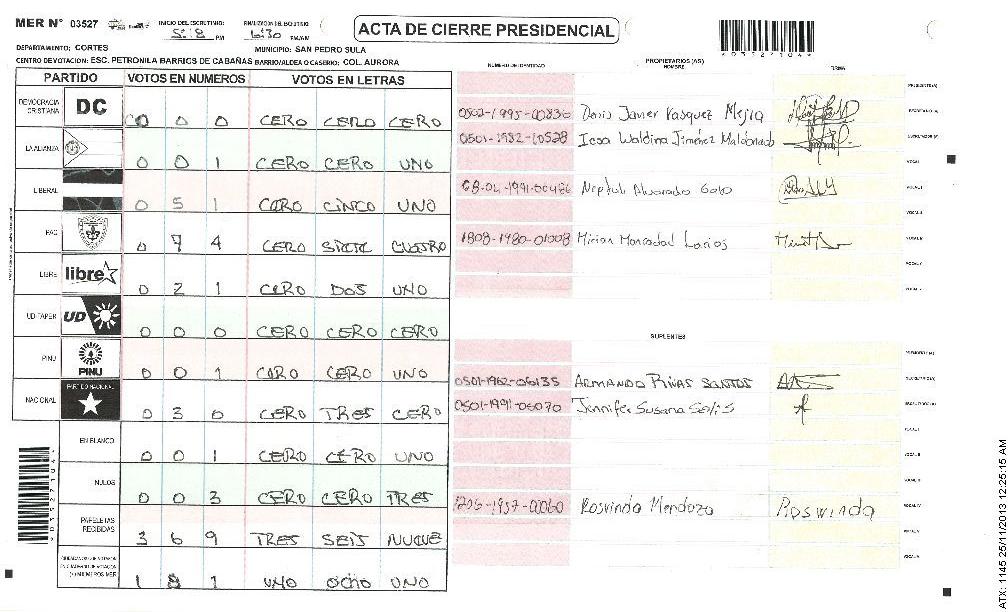 MER N° 03527
INICIO DEL ESCRUTINIO 5:18 PM
FINALIZACION DEL ESCRUTINIO 6:30 PM/AM
ACTA DE CIERRE PRESIDENCIAL
03527104
DEPARTAMENTO: CORTES
MUNICIPIO: SAN PEDRO SULA
CENTRO DE VOTACION: ESC. PETRONILA BARRIOS DE CABAÑAS BARRIO/ALDEA O CASERIO: COL. AURORA
PARTIDO VOTOS EN NUMEROS VOTOS EN LETRAS
DEMOCRACIA CRISTIANA DC 0 0 0 CERO CERO CERO
LA ALIANZA 0 0 1 CERO CERO UNO
LIBERAL 0 5 1 CERO CINCO UNO
PAC 0 7 4 CERO SIETE CUATRO
LIBRE libre 0 2 1 CERO DOS UNO
UD-FAPER UD 0 0 0 CERO CERO CERO
PINU PINU 0 0 1 CERO CERO UNO
NACIONAL PARTIDO NACIONAL 0 3 0 CERO TRES CERO
EN BLANCO 0 0 1 CERO CERO UNO
NULOS 0 0 3 CERO CERO TRES
PAPELETAS RECIBIDAS 3 6 9 TRES SEIS NUEVE
1 8 1 UNO OCHO UNO
03527104
NUMERO DE IDENTIDAD PROPIETARIOS (AS) NOMBRE FIRMA
PRESIDENTE(A)
0502-1995-00836 Vasquez Mejia SECRETARIO(A)
0501-1982-10528 Waldina Jiménez Maldonado ESCRUTADOR(A)
VOCAL I
Alvarado VOCAL II
VOCAL III
1808-1980-01008 Mirian Larios VOCAL IV
VOCAL V
SUPLENTES
PRESIDENTE(A)
0501-1962-06135 ARMANDO RIVAS SANTOS SECRETARIO(A)
0501-1991-06070 Jennifer Susana ESCRUTADOR(A)
VOCAL I
VOCAL II
VOCAL III
Rosvinda Mendoza Roswinda VOCAL IV
VOCAL V
ATX: 1145 25/11/2013 12:25:15 AM